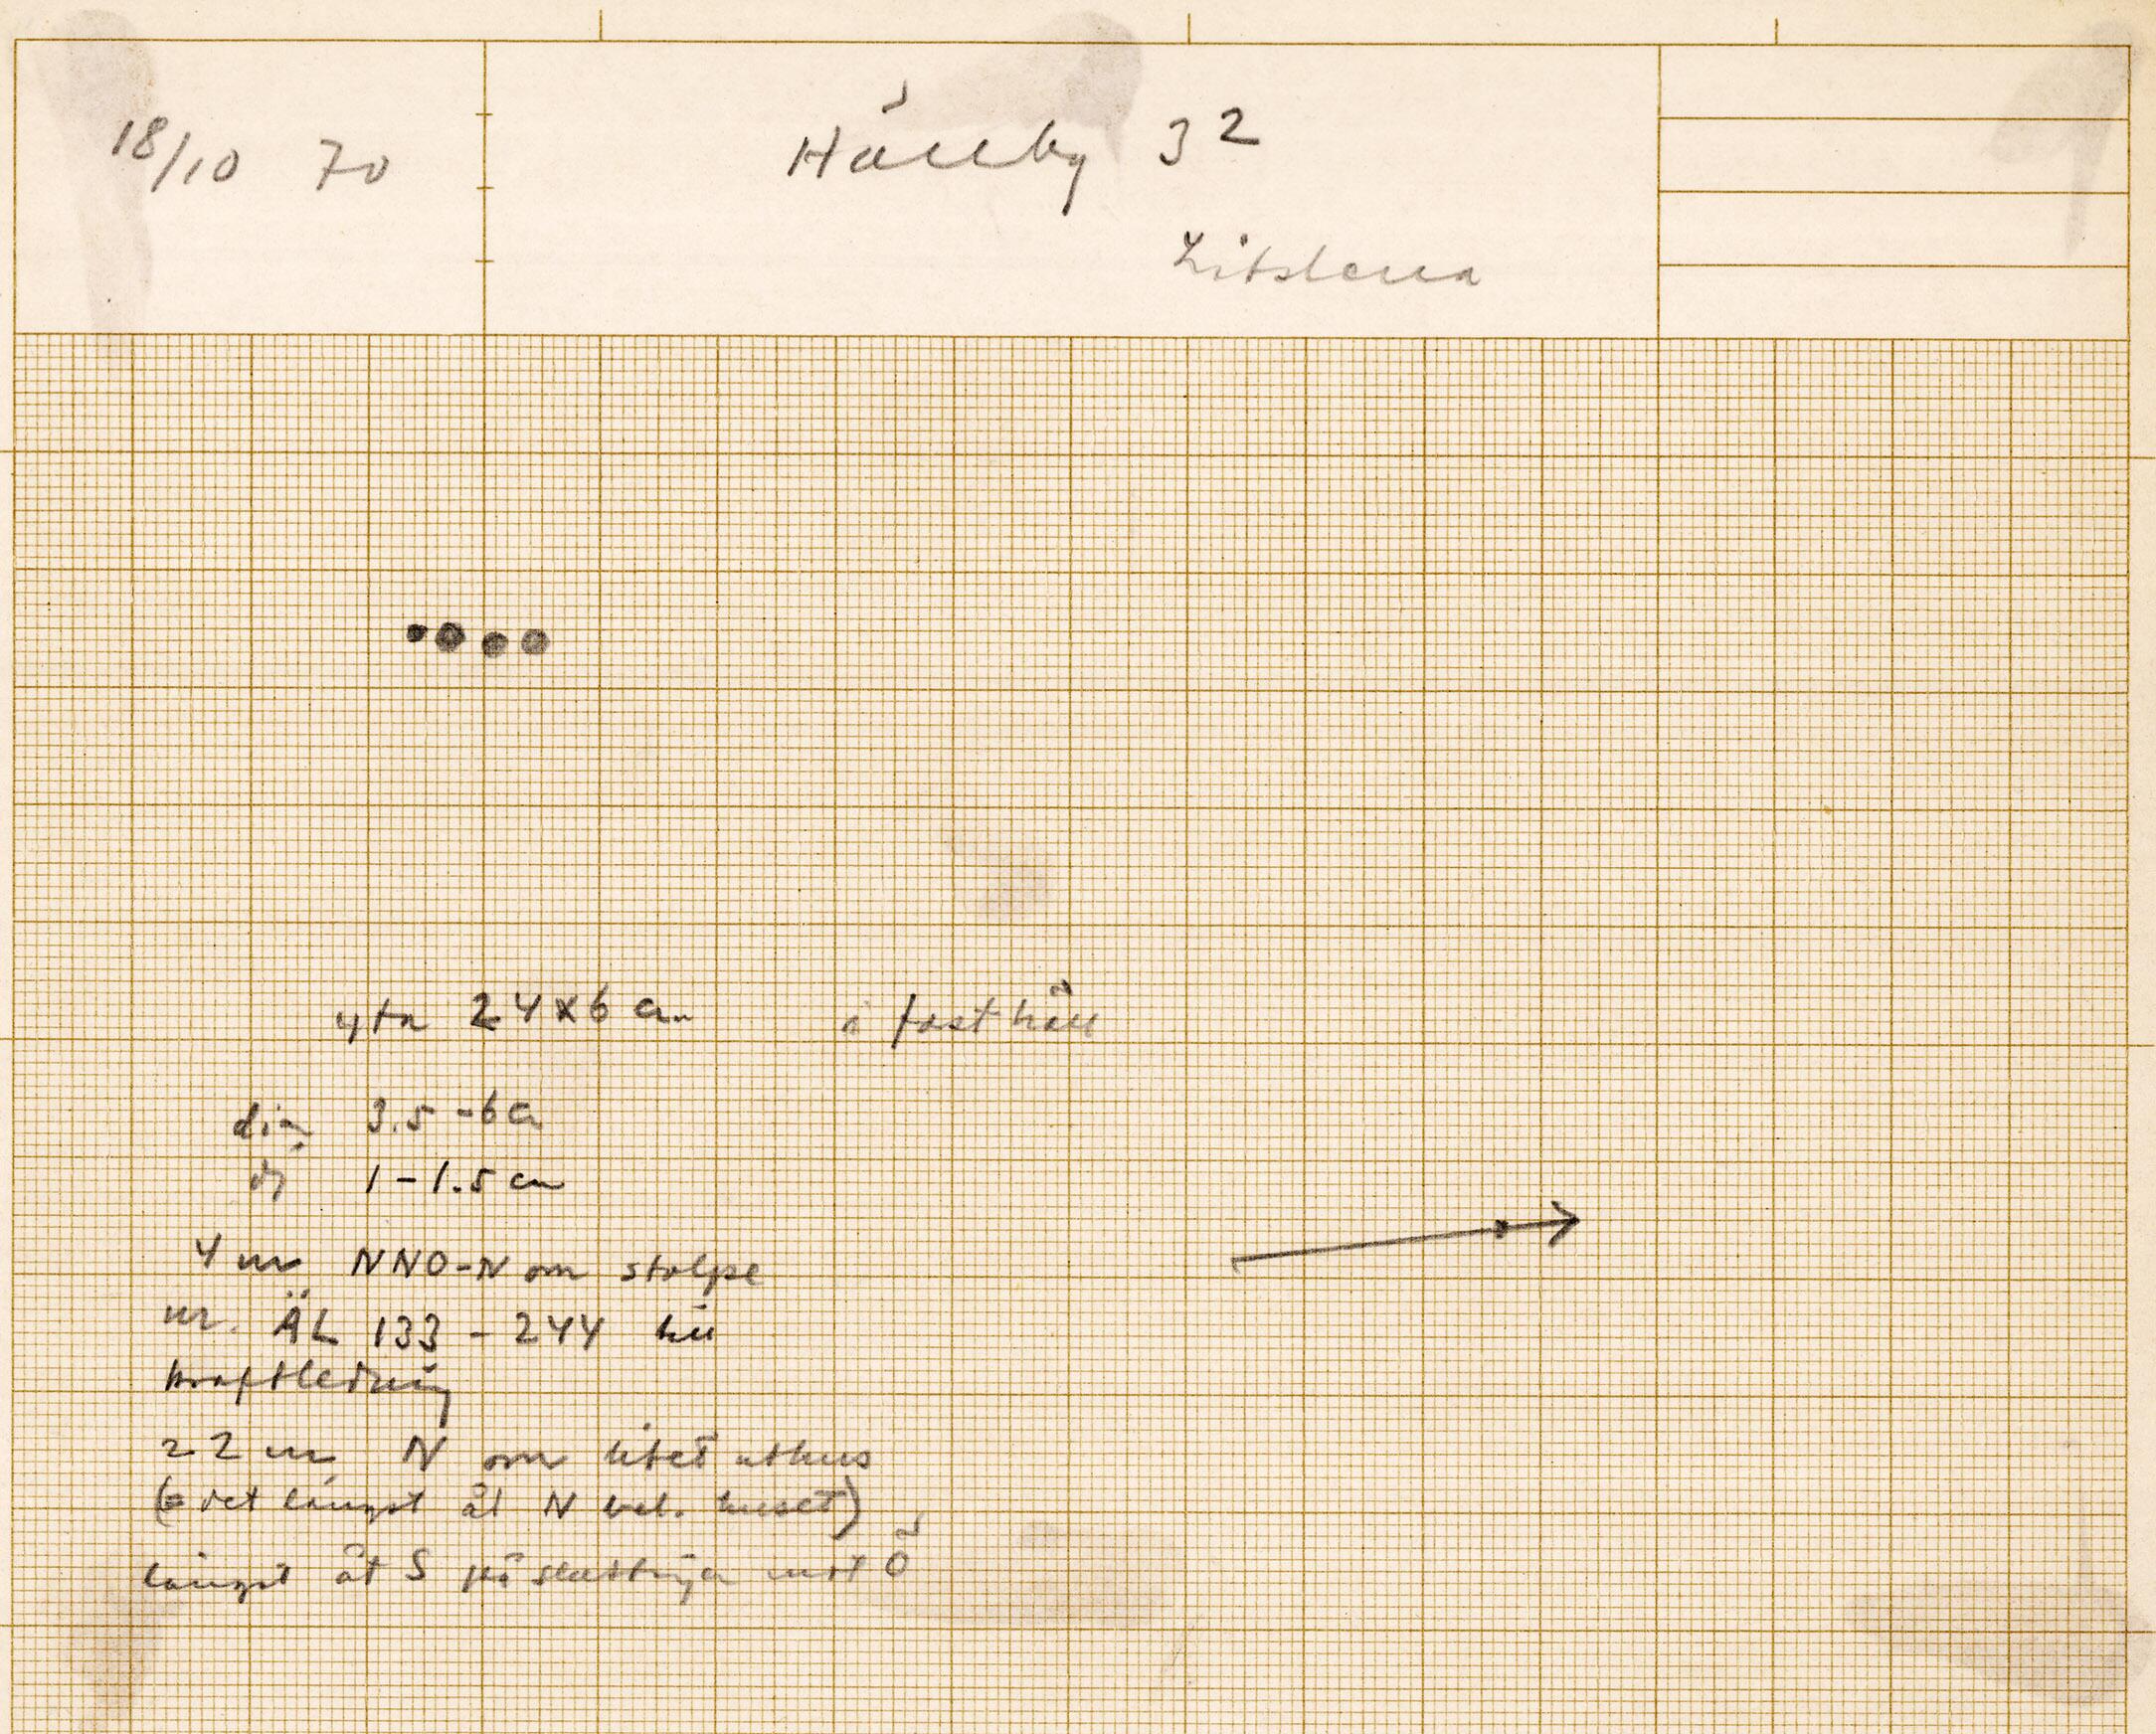 18/10 70
Hällby 3²
Litslena
yta 24x6 cm i fast häll
dia 3.5-6 cm
dj 1-1.5 cm
4 m NNO-N om stolpe
nr. ÄL 133-244 till
kraftledning
22 m N om litet uthus
(= det längst åt N bel. huset)
längst åt S på sluttning mot Ö